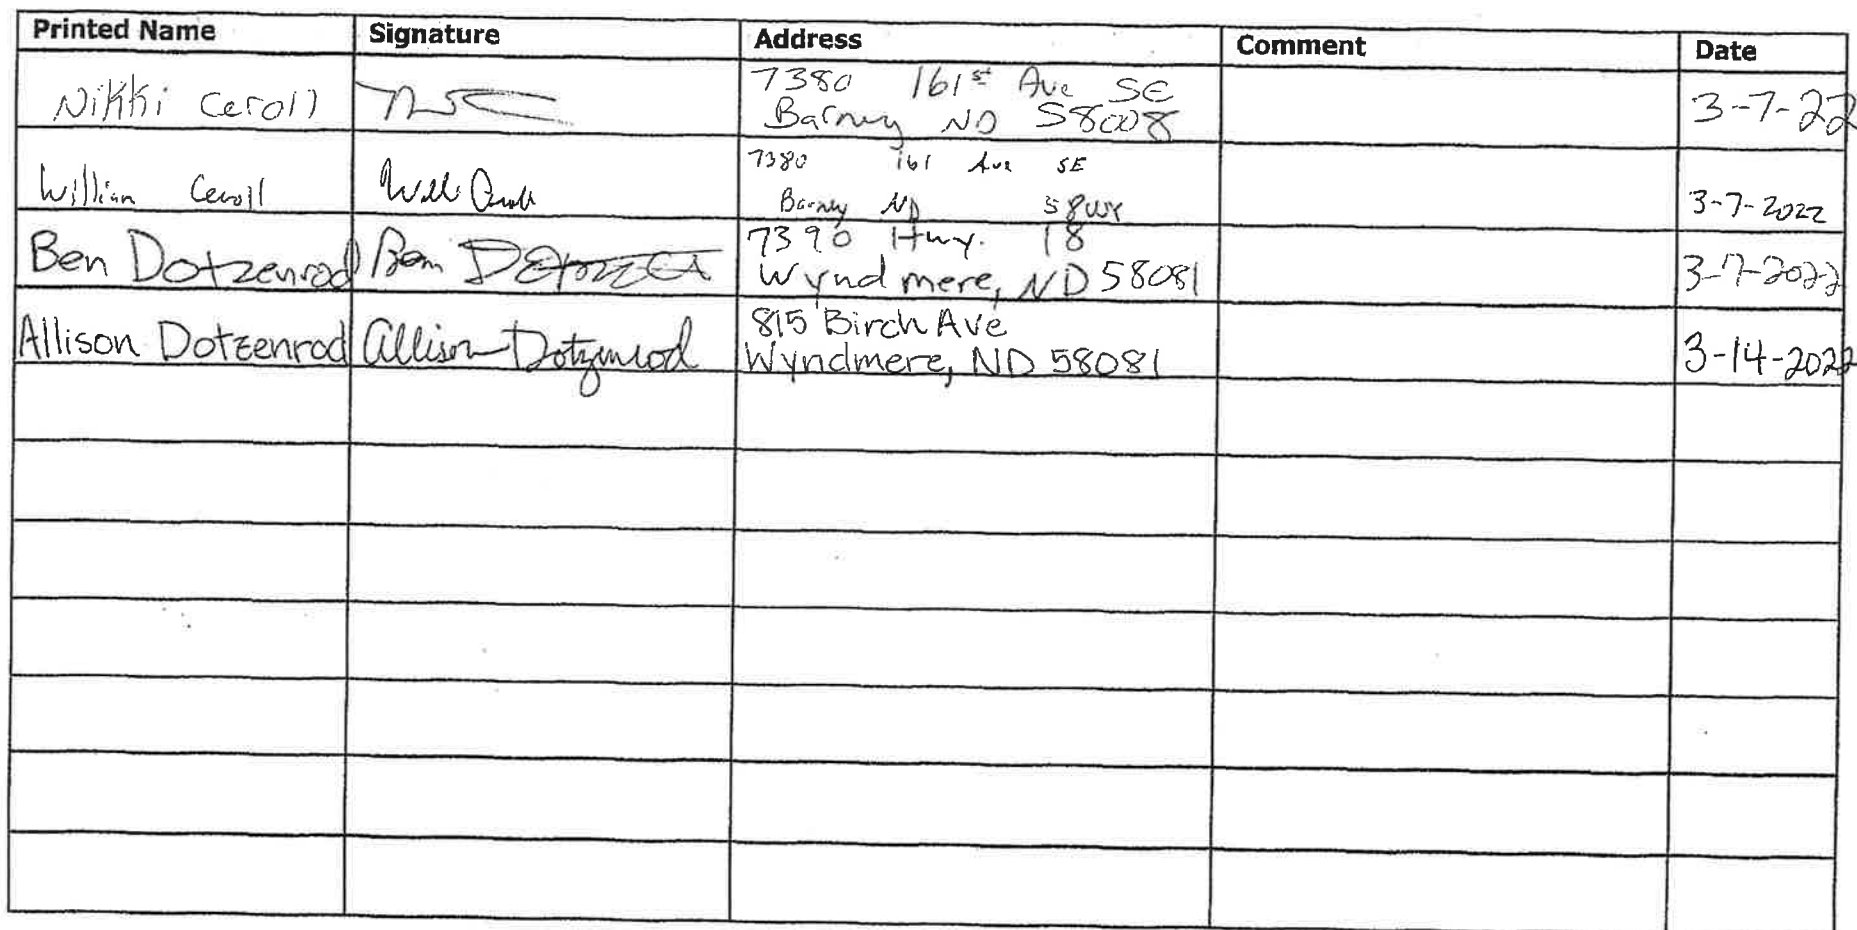 Printed Name Signature Address Comment Date
Nikki Ceroll 7380 161st Ave SE 3-7-22
Barney ND 58008
William Ceroll Will Ceroll 7380 161 Ave SE
Barney ND 58008 3-7-2022
Ben Dotzenrod Ben 7390 Hwy. 18
Wyndmere, ND 58081 3-7-2022
Allison Dotzenrod Allison Dotzenrod 815 Birch Ave
Wyndmere, ND 58081 3-14-2022